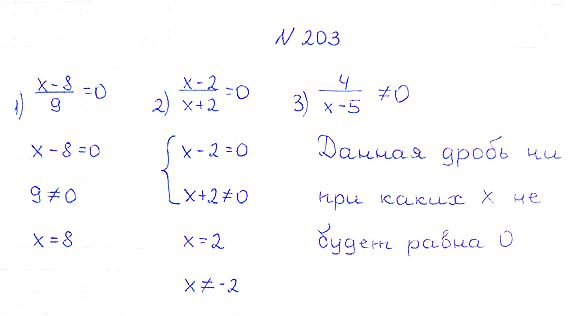 N 203
1) (x-8)/9 =0
x-8=0
9≠0
x=8
2) (x-2)/(x+2) =0
x-2=0
x+2≠0
x=2
x≠-2
3) 4/(x-5) ≠0
Данная дробь ни
при каких x не
будет равна 0